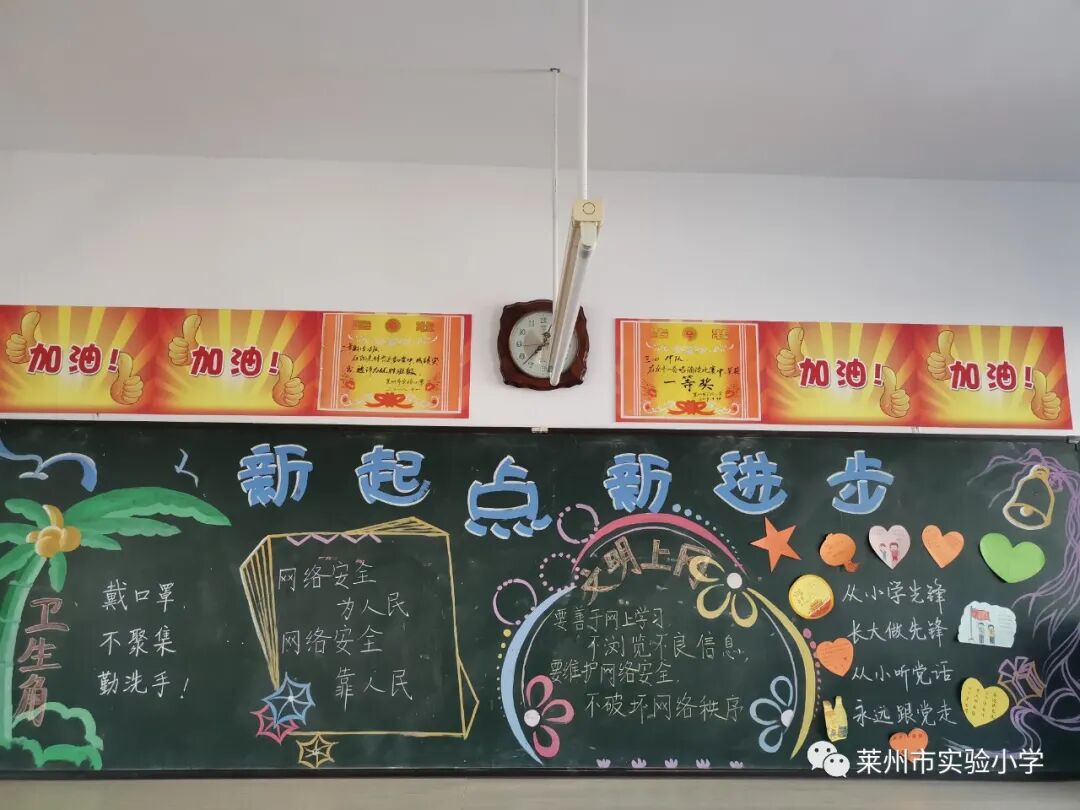 加油!
加油!
一等奖
加油!
加油!
新起点新进步
卫生角
戴口罩,
不聚集
勤洗手!
网络安全
为人民
网络安全
靠人民
文明上网
要善于网上学习
不浏览不良信息,
要维护网络安全,
不破坏网络秩序
从小学先锋
长大做先锋
从小听党话
永远跟党走
莱州市实验小学